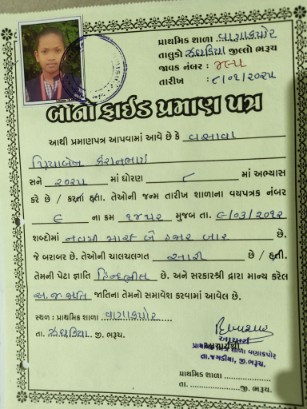 પ્રાથમિક શાળા વાગાકપોર
તાલુકો ઝઘડિયા જીલ્લો ભરૂચ
જાવક નંબર :
તારીખ : ૮/૦૧/૨૦૨૫
બોનાફાઈડ પ્રમાણ પત્ર
આથી પ્રમાણપત્ર આપવામાં આવે છે કે વસાવા
સને ૨૦૨૫ માં ધોરણ ૮ માં અભ્યાસ
કરે છે / કરતી હતા. તેઓની જન્મ તારીખ શાળાના વયપત્રક નંબર
૯ ના ક્રમ ૧૪૫૨ મુજબ તા. ૯/૦૩/૨૦૧૨
શબ્દોમાં નવમી માર્ચ બે હજાર બાર છે.
જે બરાબર છે. તેઓની ચાલચલગત સારી છે / હતી.
તેમની પેટા જ્ઞાતિ હિન્દુભીલ છે. અને સરકારશ્રી દ્વારા માન્ય કરેલ
અ.જ.જાતિ જાતિના તેમનો સમાવેશ કરવામાં આવેલ છે.
સ્થળ : પ્રાથમિક શાળા વાગાકપોર
તા. ઝઘડિયા જી. ભરૂચ.
આચાર્ય
તા.ઝઘડીયા, જી.ભરૂચ
પ્રાથમિક શાળા
તા. જી. ભરૂચ.